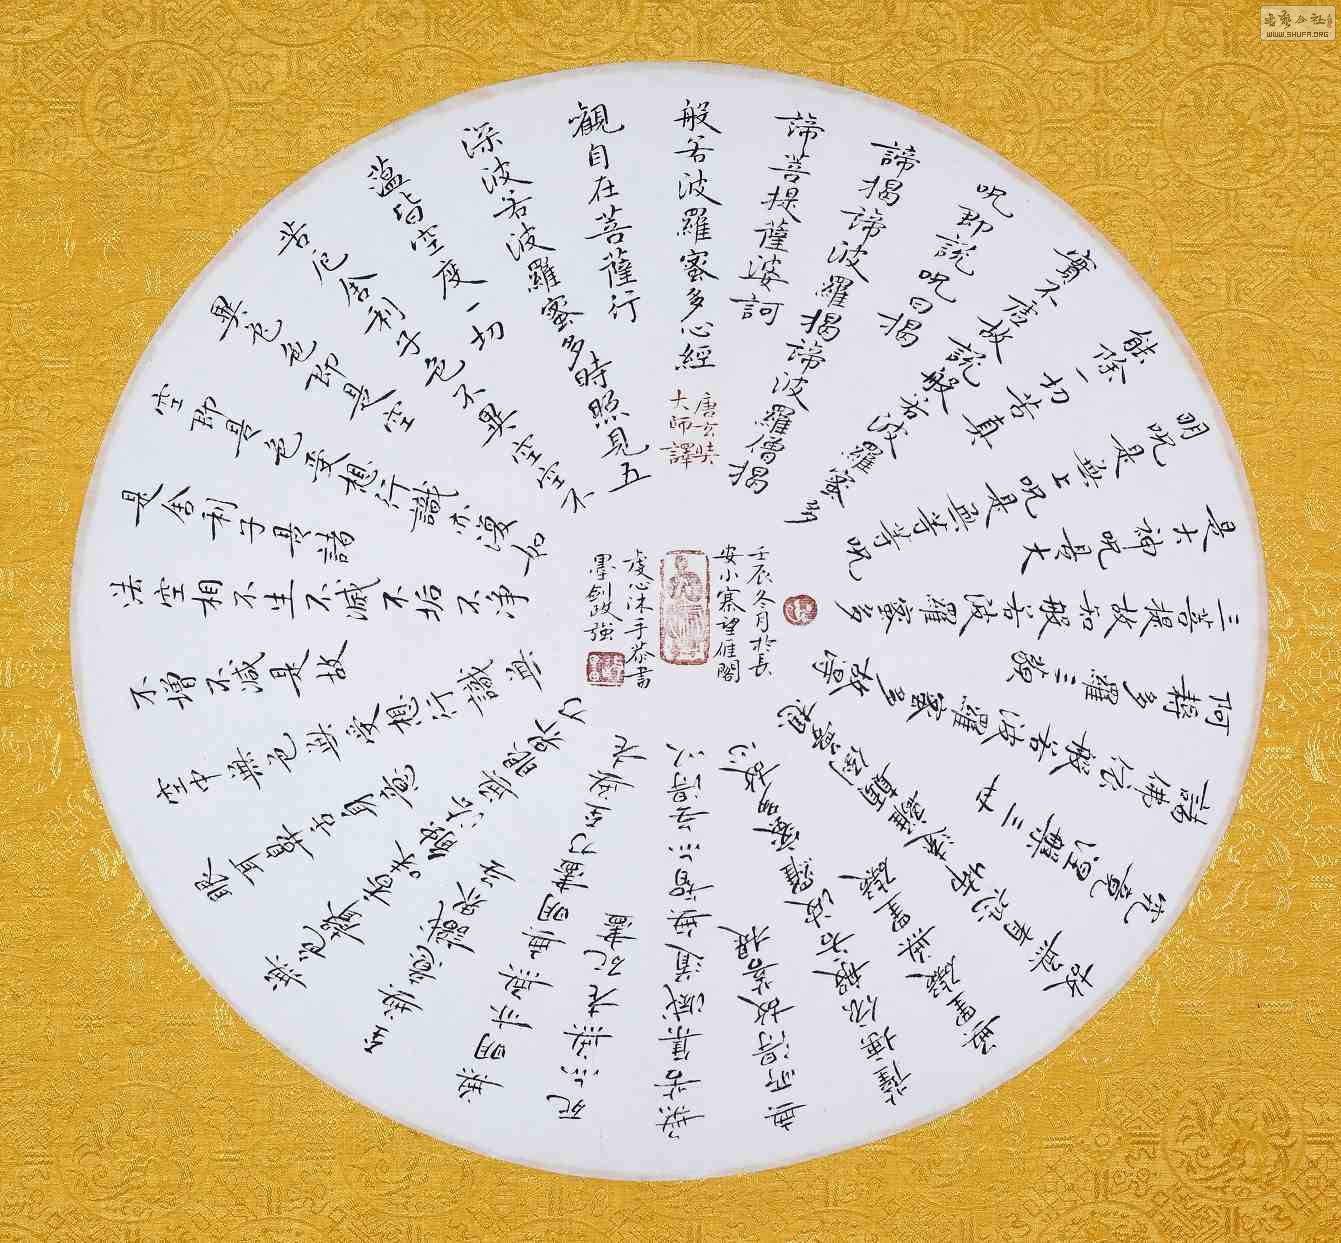 般若波羅蜜多心經
唐玄奘
大師譯
觀自在菩薩行
深波若波羅蜜多時照見五
蘊皆空度一切
苦厄舍利子色不異空空不
異色色即是空
空即是色受想行識亦復如
是舍利子是諸
法空相不生不滅不垢不淨
不增不減是故
空中無色無受想行識無
眼耳鼻舌身意
無色聲香味觸法無眼界乃
至無意識界無
無明亦無無明盡乃至無老
死亦無老死盡
無苦集滅道無智亦無得以
無所得故菩提
薩埵依般若波羅蜜多故心
無罣礙無罣礙
故無有恐怖遠離顛倒夢想
究竟涅槃三世
諸佛依般若波羅蜜多故得
阿耨多羅三藐
三菩提故知般若波羅蜜多
是大神咒是大
明咒是無上咒是無等等咒
能除一切苦真
實不虛故說般若波羅蜜多
咒即說咒曰揭
諦揭諦波羅揭諦波羅僧揭
諦菩提薩婆訶
壬辰冬月於長
安小寨望雁閣
虔心沐手恭書
墨劍政強
WWW.SHUFA.ORG